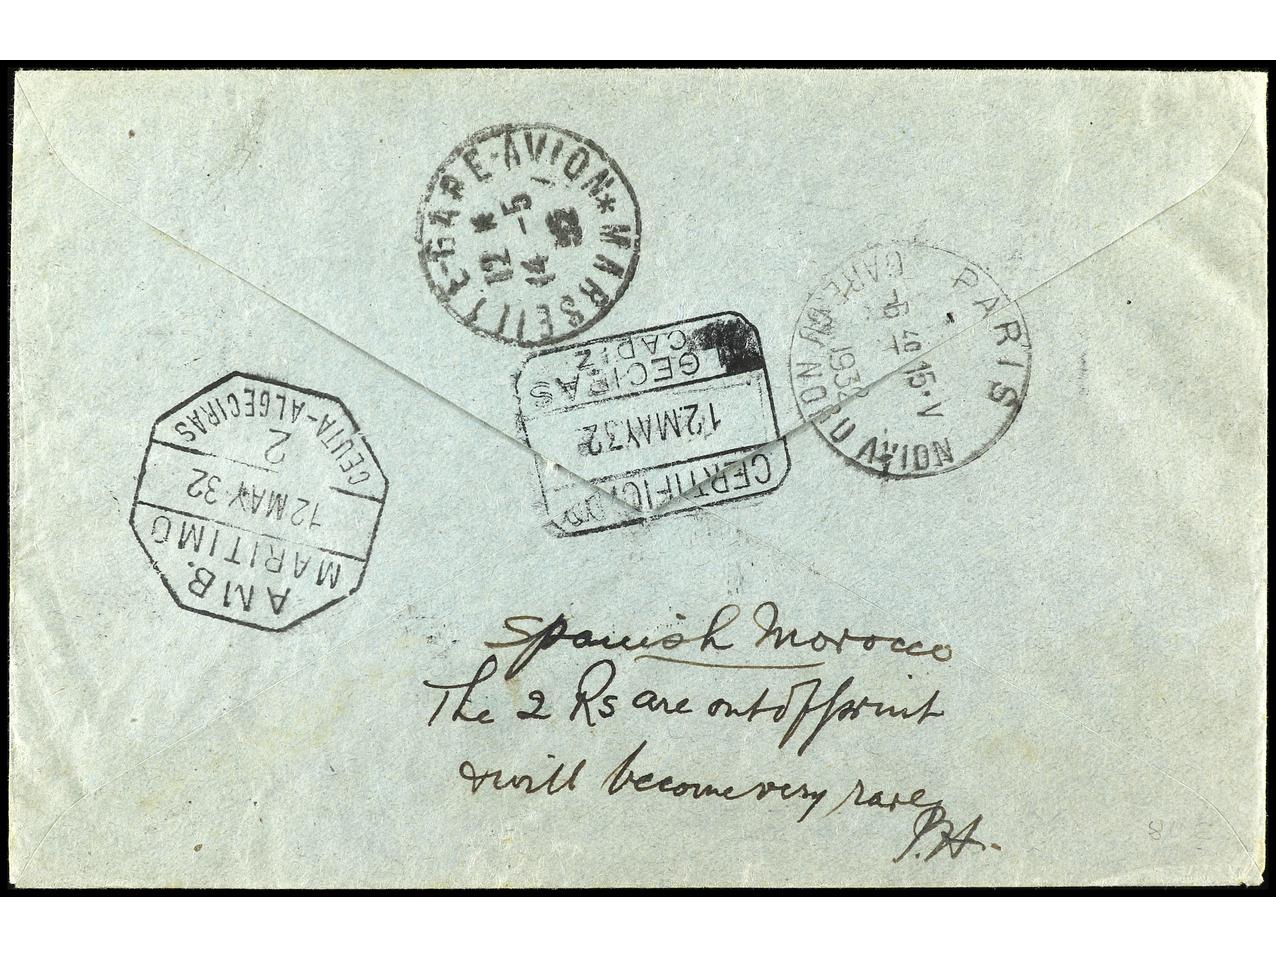 MARSEILLE-GARE-AVION *
12 *
14 -5
32
PARIS
GARE DU NORD AVION
15·V
1932
CERTIFICADO
12 MAY 32
GECIRAS
CADIZ
AMB.
MARITIMO
12 MAY 32
2
CEUTA-ALGECIRAS
Spanish Morocco
The 2 Rs are out of print
& will become very rare
P.H.